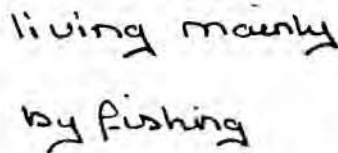 living mainly
by fishing